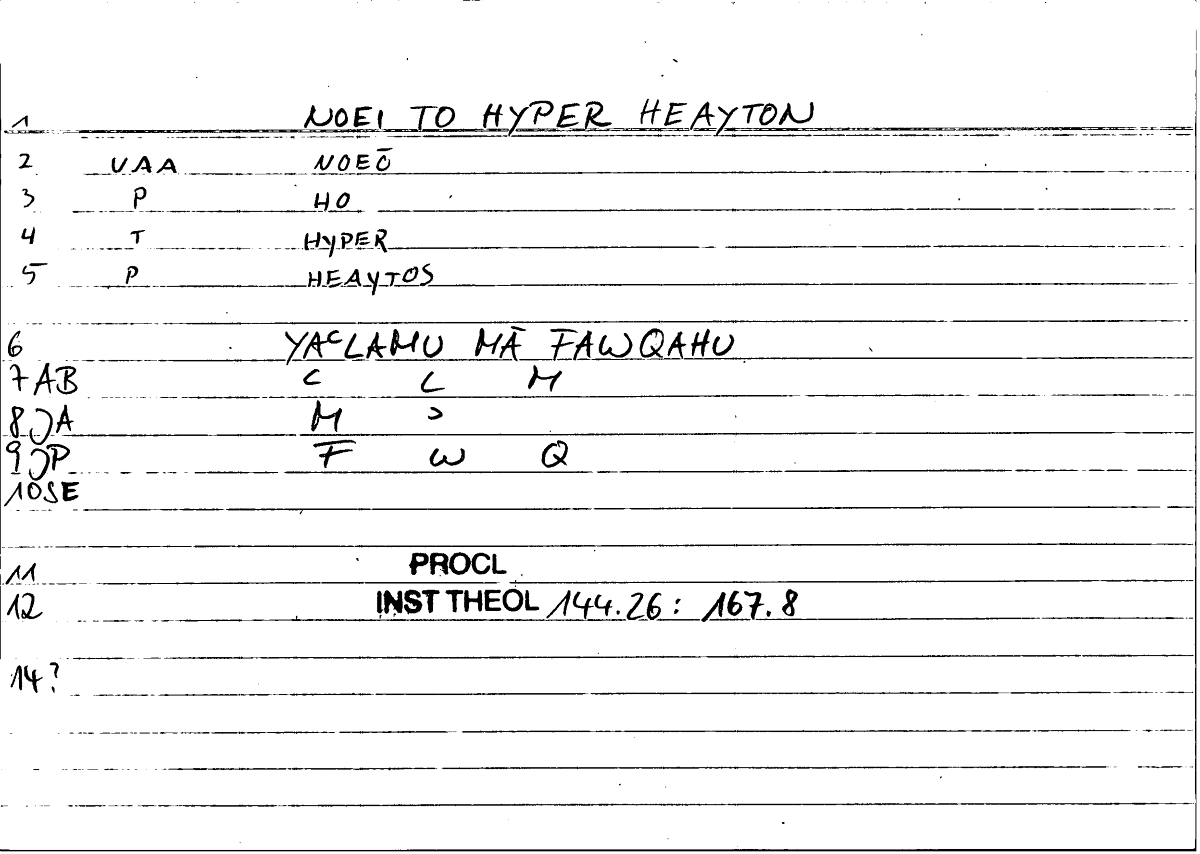 1 NOEI TO HYPER HEAYTON
2 VAA NOEŌ
3 P HO
4 T HYPER
5 P HEAYTOS
6 YAᶜLAMU MĀ FAWQAHU
7 AB ᶜ L M
8 JA M ᵓ
9 JP F W Q
10 SE
11 PROCL
12 INST THEOL 144.26: 167.8
14?